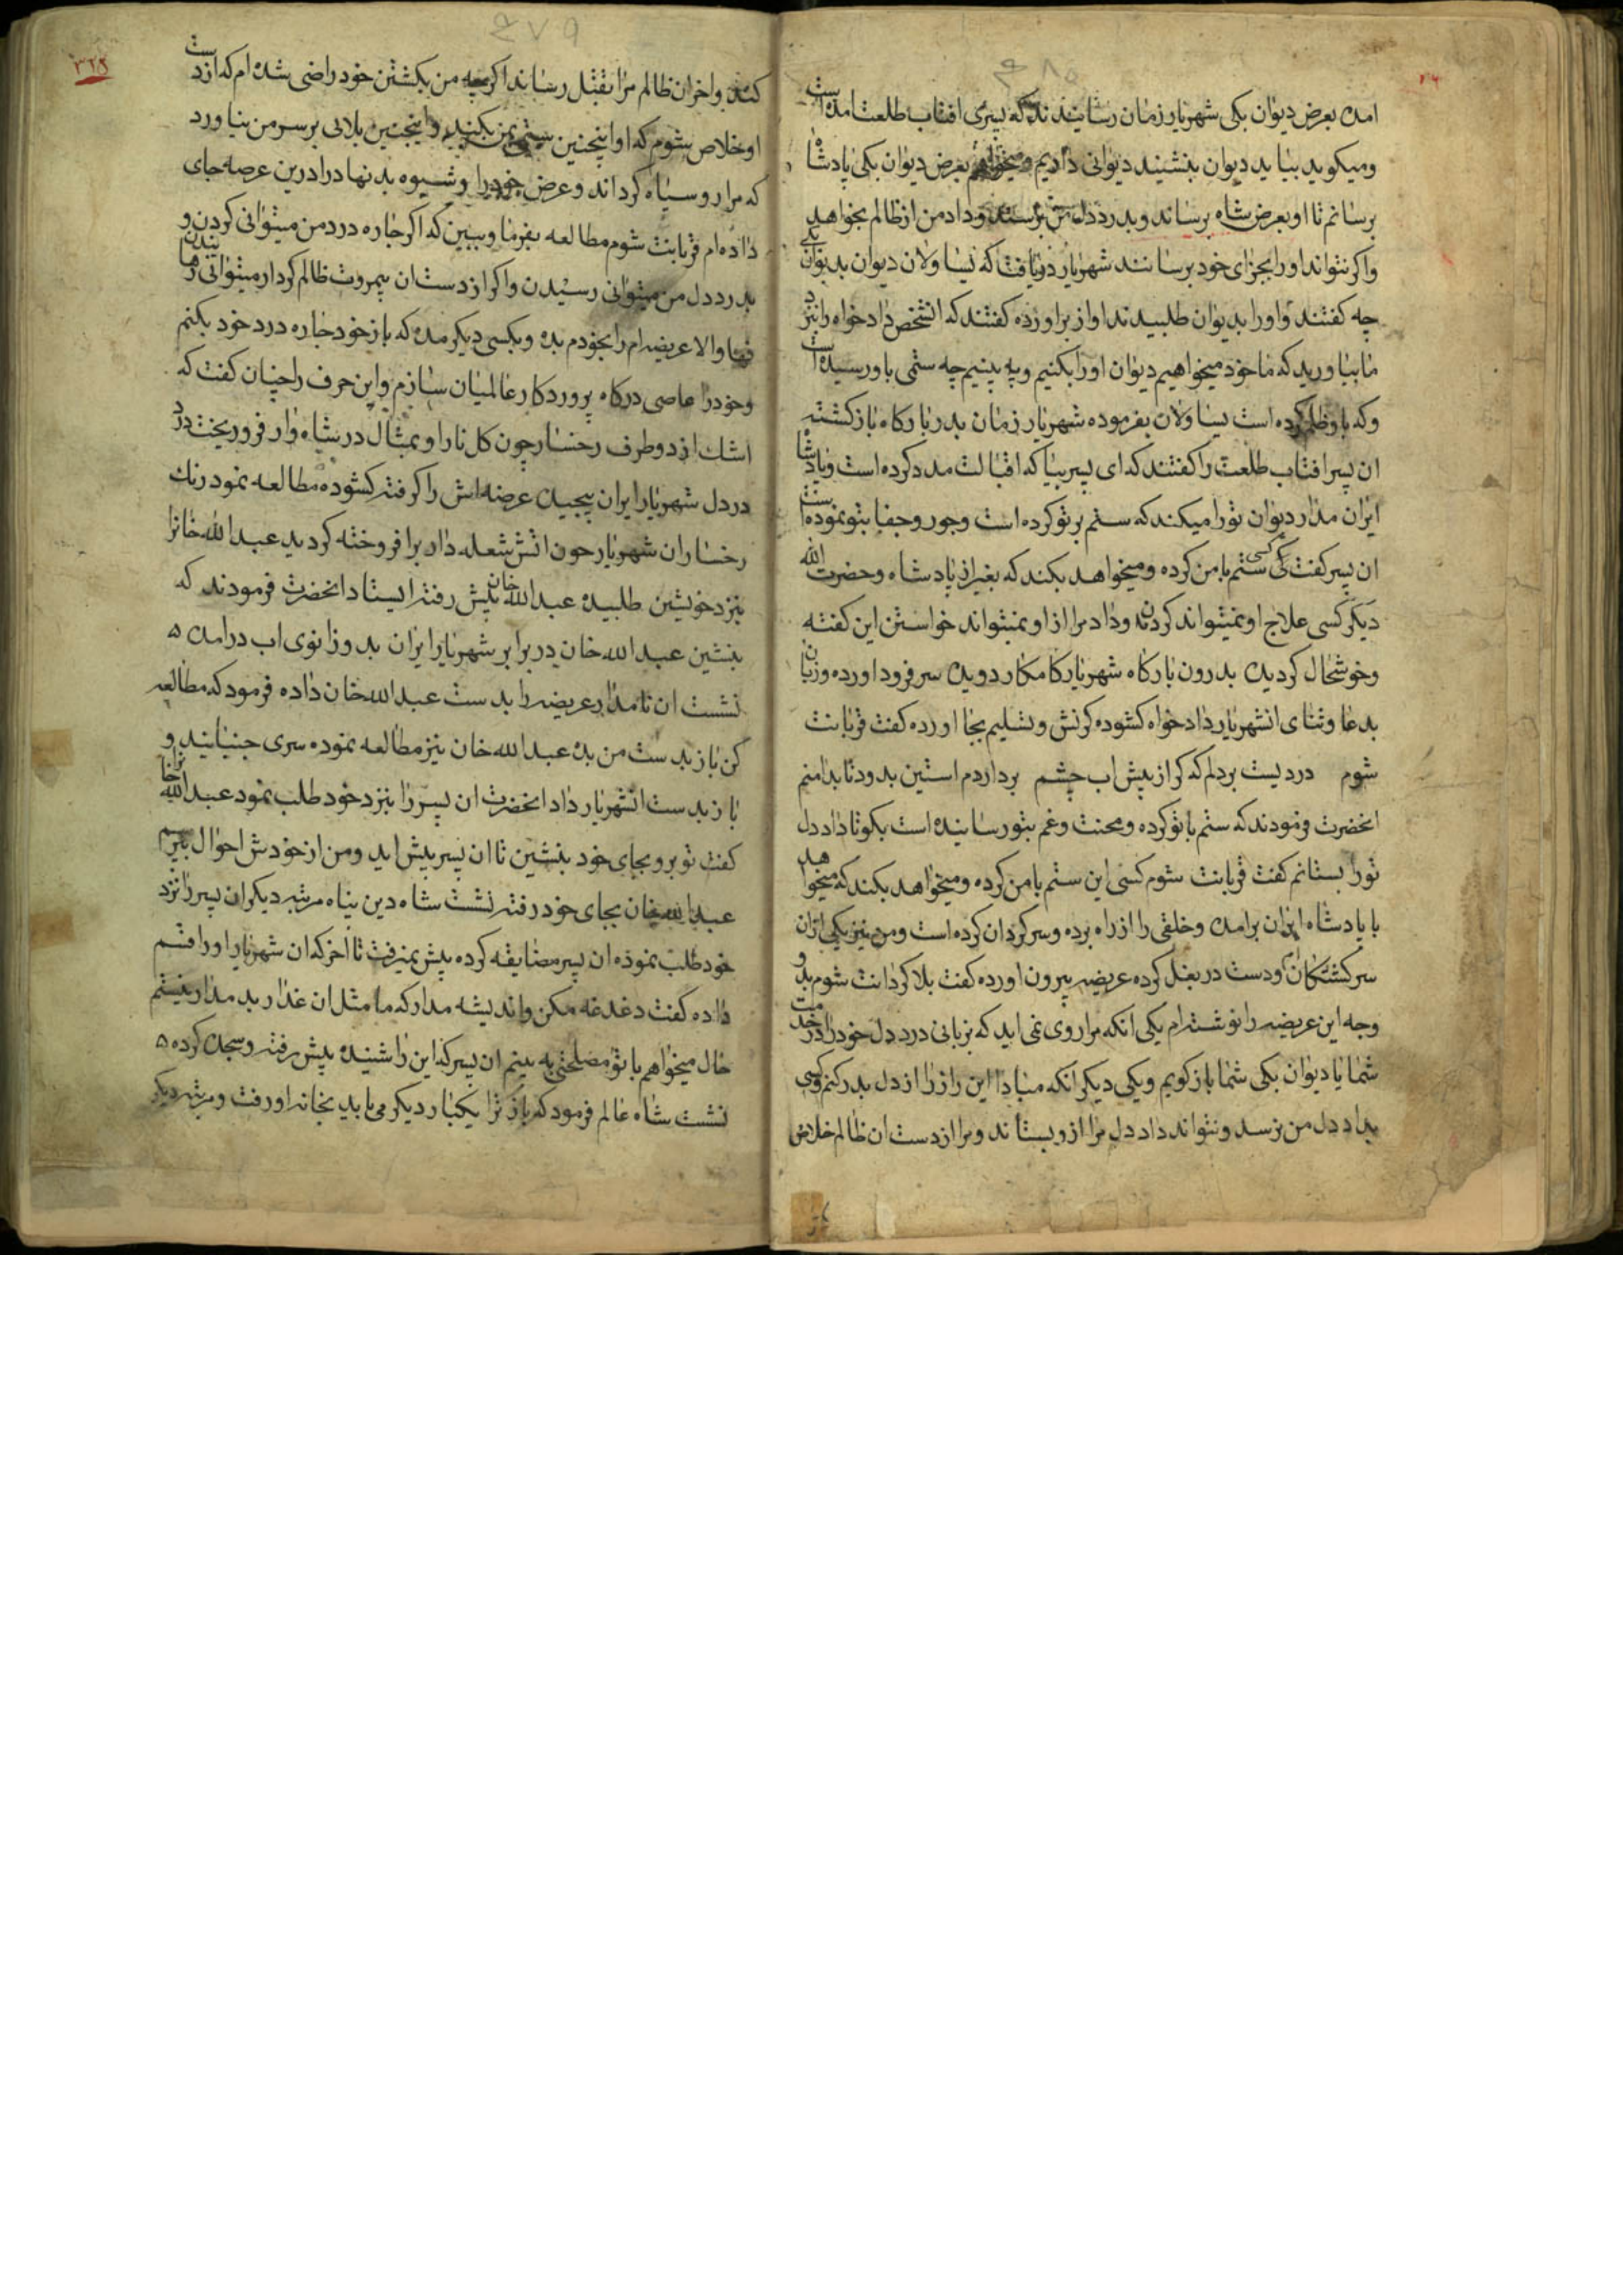 امده بعرض دیوان بکی شهریار زمان رسانیدند که پسری افتاب طلعت امده است
ومیکوید بیاید دیوان بنشیند دیوانی داریم ومیخواهم بعرض دیوان بکی پادشاه
برسانم تا او بعرض شاه برساند وبدرد دل من برسند وداد من از ظالم بخواهد
واکر نتواند اورا بجزای خود برسانند شهریار دریافت که یساولان دیوان بدیوان بکی
چه کفتند واورا بدیوان طلبیدند اواز براورده کفتند که انشخص داد خواه را نزد
ما بیاورید که ما خود میخواهیم دیوان اورا بکنیم وبه بینیم چه ستمی باو رسیده است
وکه باو ظلم کرده است یساولان بفرموده شهریار زمان بدر بارکاه باز کشته
ان پسر افتاب طلعت را کفتند که ای پسر بیا که اقبالت مدد کرده است وپادشاه
ایران مدار دیوان تورا میکند که ستم بر تو کرده است وجور وجفا بتو نموده است
ان پسر کفت که کسی ستم با من کرده ومیخواهد بکند که بغیر از پادشاه وحضرت الله
دیکر کسی علاج او نمیتواند کردن وداد مرا از او نمیتواند خواستن این کفته
وخوشحال کردید بدرون بارکاه شهریار کامکار دوید سر فرود اورده وزبان
بدعا وثنای انشهریار داد خواه کشوده کرنش وتسلیم بجا اورده کفت قربانت
شوم دردیست بردلم که کر از پیش اب چشم بردارم استین بدود تا بدامنم
انحضرت فرمودند که ستم با تو کرده ومحنت وغم بتو رسانیده است بکو تا داد دل
تورا بستانم کفت قربانت شوم کسی این ستم با من کرده ومیخواهد بکند که میخواهد
با پادشاه ایران برامد وخلقی را از راه برده وسرکردان کرده است ومن نیز یکی ازان
سرکشتکان ودست در بغل کرده عریضه بیرون اورده کفت بلا کردانت شوم بدو
وجه این عریضه را نوشته ام یکی انکه مرا روی نمی اید که بزبانی درد دل خود را در خدمت
شما یا دیوان بکی شما باز کویم ویکی دیکر انکه مبادا این راز را از دل بدر کنم وکسی
بداد دل من نرسد ونتواند داد دل مرا ازو بستاند ومرا از دست ان ظالم خلاص
۳۲۸
کند واخر ان ظالم مرا بقتل رساند اکرچه من بکشتن خود راضی شده ام که از دست
او خلاص شوم که او اینچنین ستمی بمن بکند واینچنین بلائی بر سر من بیاورد
که مرا روسیاه کرداند وعرض خود را وشیوه بد نهاد را درین عرصه جای
داده ام قربانت شوم مطالعه بفرما وببین که اکر چاره درد من میتوانی کردن و
بدرد دل من میتوانی رسیدن واکر از دست ان بیمروت ظالم کردار میتوانی رهانیدن
فبها والا عریضه ام را بخودم بده وبکسی دیکر مده که باز خود چاره درد خود بکنم
وخود را عاصی درکاه پروردکار عالمیان سازم واین حرف را چنان کفت که
اشک از دو طرف رخسار چون کل نار او بمثال در شاه وار فرو ریخت درد
در دل شهریار ایران پیچید عرضه اش را کرفته کشوده مطالعه نمود رنک
رخسار ان شهریار چون اتش شعله دار برافروخته کردید عبدالله خانرا
نزد خویشین طلبیده عبدالله خان پیش رفته ایستاد انحضرت فرمودند که
بنشین عبدالله خان در برابر شهریار ایران بدو زانوی اب درامده
نشست ان نامدار عریضه را بدست عبدالله خان داده فرمود که مطالعه
کن باز بدست من بده عبدالله خان نیز مطالعه نموده سری جنبانید و
باز بدست انشهریار داد انحضرت ان پسر را نزد خود طلب نمود عبدالله خانرا
کفت تو برو بجای خود بنشین تا ان پسر پیش اید ومن از خودش احوال بپرسم
عبدالله خان بجای خود رفته نشست شاه دین پناه مرتبه دیکر ان پسر را نزد
خود طلب نموده ان پسر مضایقه کرده پیش نمیرفت تا اخر که ان شهریار اورا قسم
داده کفت دغدغه مکن واندیشه مدار که ما مثل ان غدار بد مدار نیستم
حال میخواهم با تو مصلحتی به بینم ان پسر که این را شنیده پیش رفته وسجده کرده
نشست شاه عالم فرمود که باز ترا یکبار دیکر می باید بخانه او رفت ومرتبه دیکر